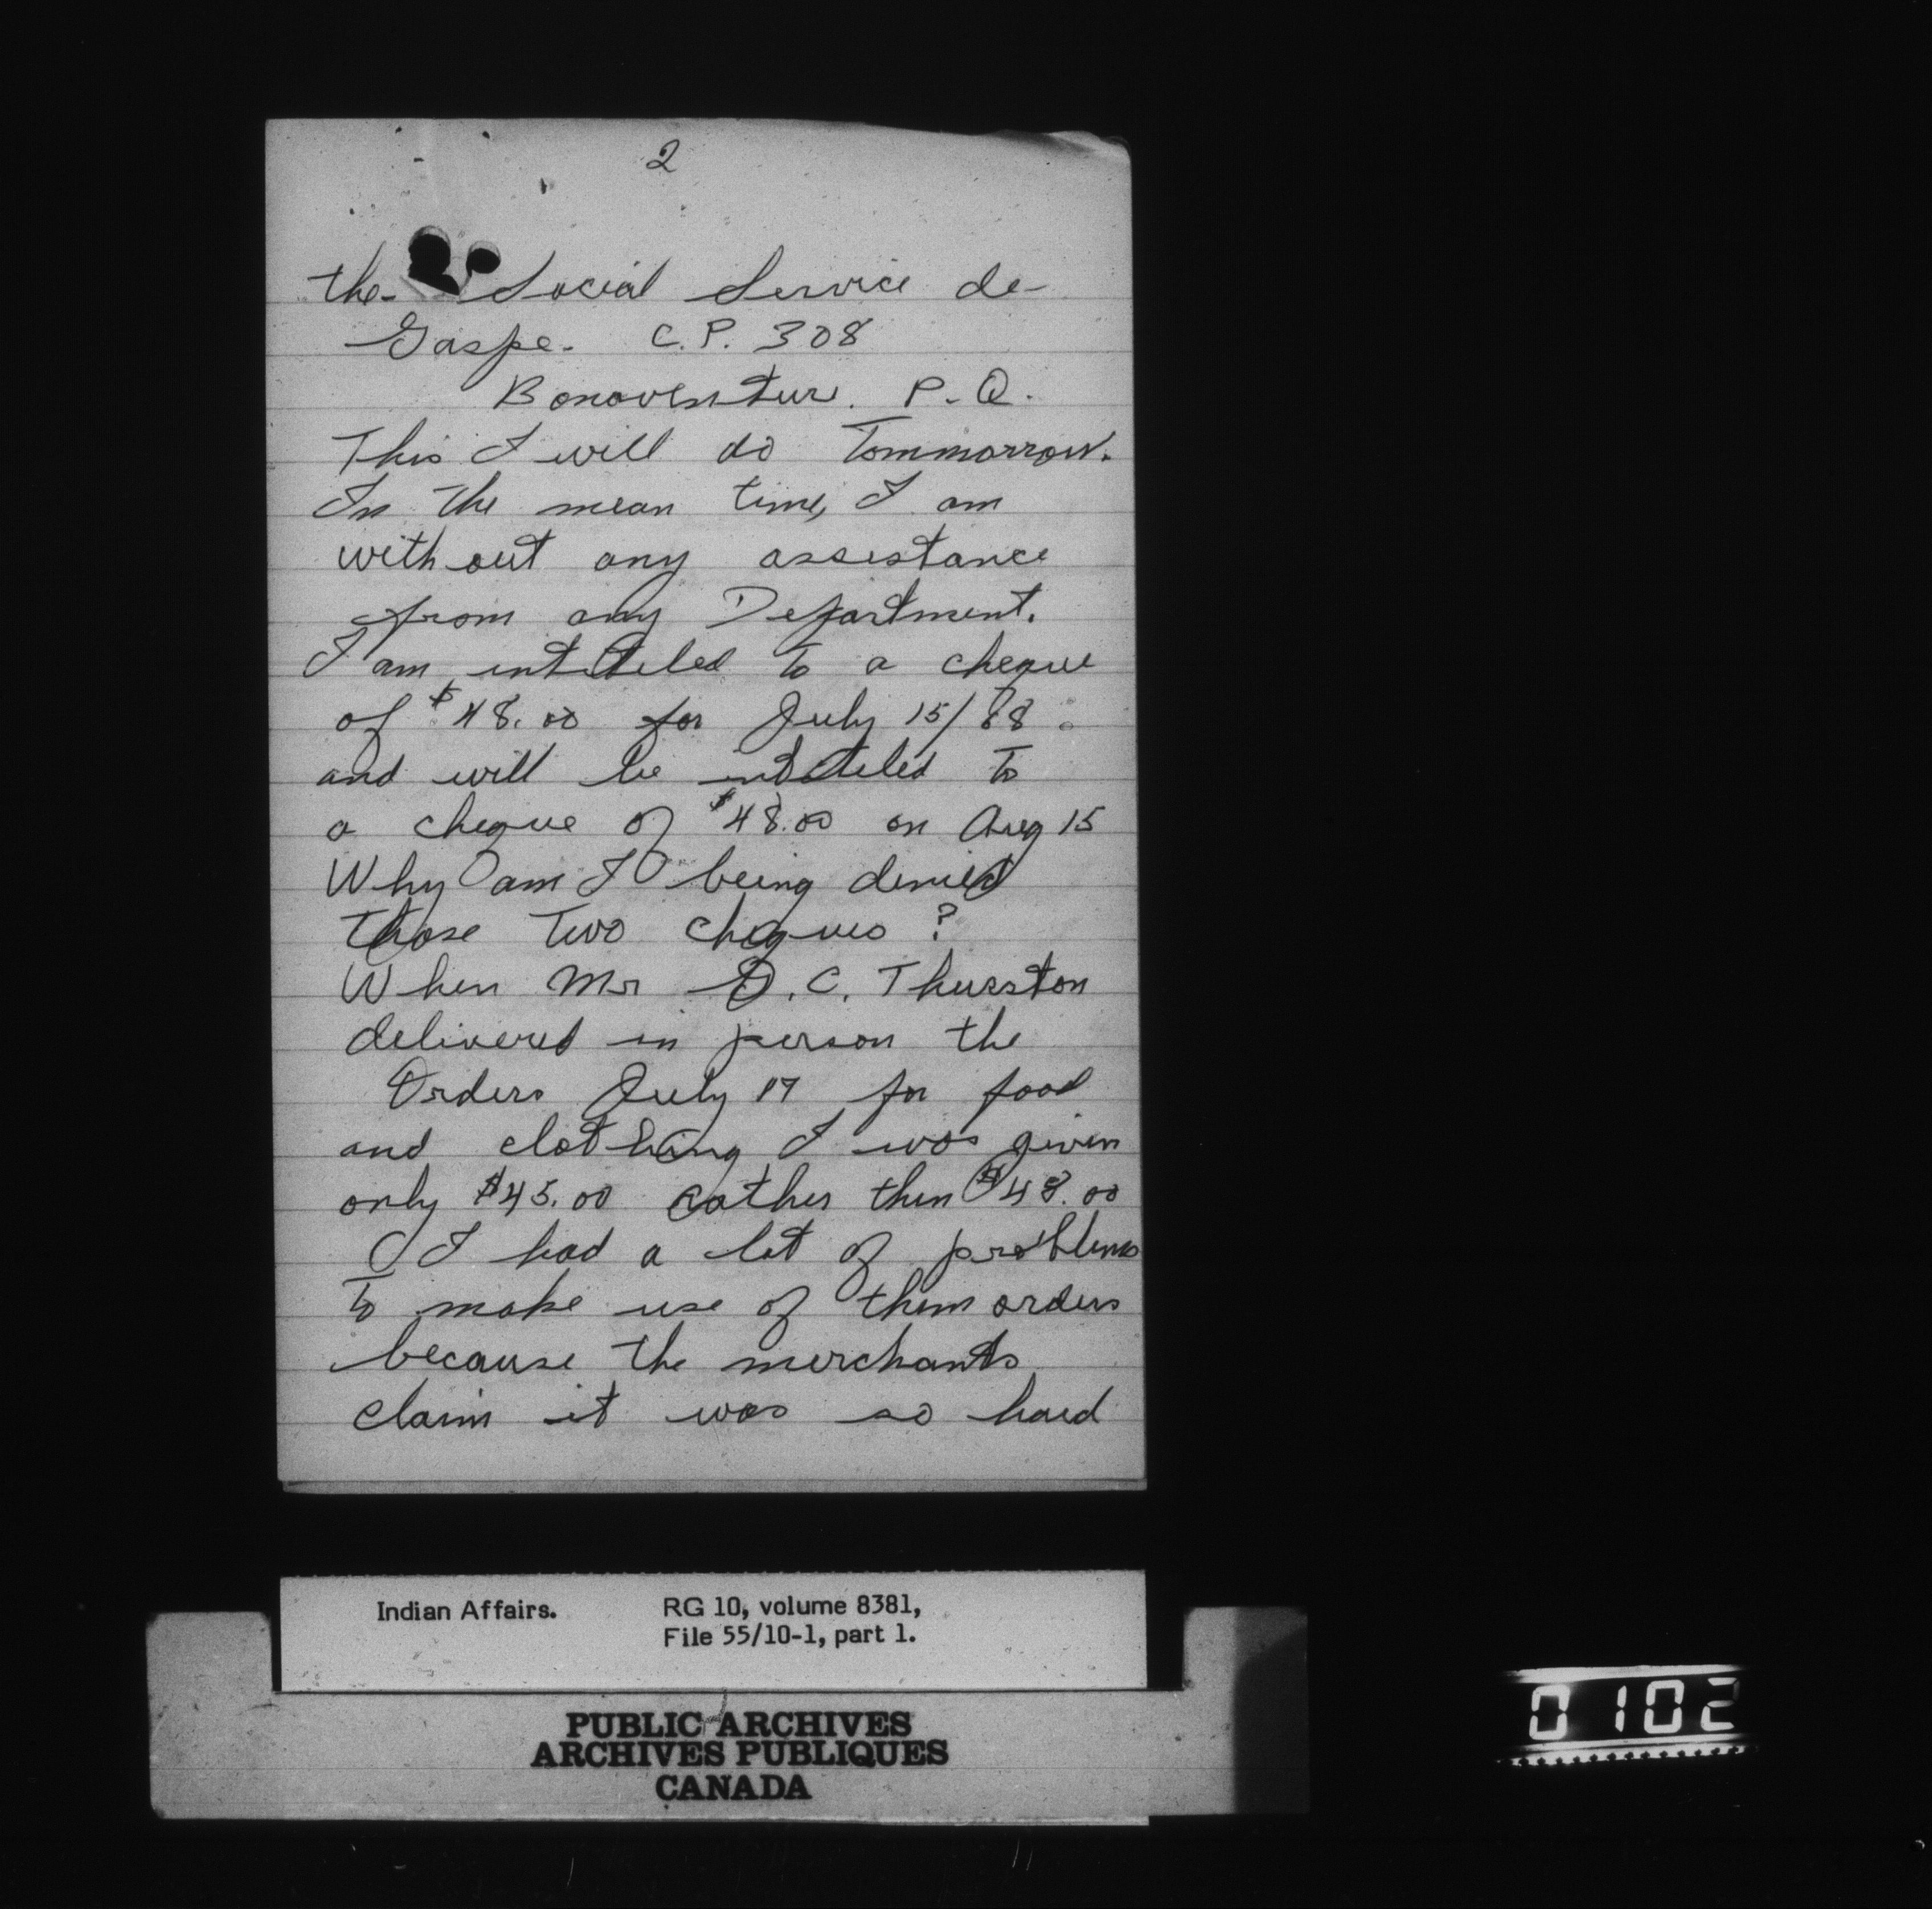 2
the Social Service de
Gaspe. C.P. 308
Bonaventur. P.Q.
This I will do Tommorrow.
In the mean time, I am
without any assistance
from any Department.
I am intiteled to a cheque
of $48.00 for July 15/68
and will be intiteled to
a cheque of $48.00 on Aug 15
Why am I being denied
those two cheques?
When Mr D.C. Thurston
delivered in person the
Orders July 17 for food
and clothing I was given
only $45.00 rather then $48.00
I had a lot of problems
to make use of them orders
because the merchants
claim it was so hard
Indian Affairs. RG 10, volume 8381,
File 55/10-1, part 1.
PUBLIC ARCHIVES
ARCHIVES PUBLIQUES
CANADA
0102